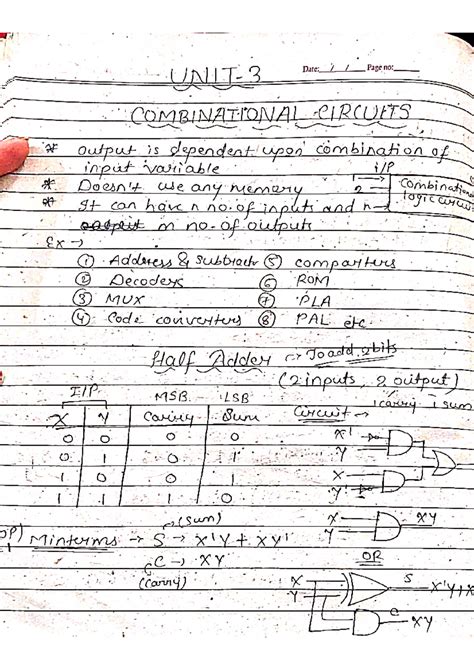 Date: / / Page no:
UNIT-3
COMBINATIONAL CIRCUITS
* output is dependent upon combination of
input variable
i/p
* Doesn't use any memory
* It can have n no. of inputs and
m no. of outputs
2
n
Combinatio
logic circui
Ex →
① Adders & Subtractr ⑤ comparters
② Decoders ⑥ ROM
③ MUX ⑦ PLA
④ Code converters ⑧ PAL etc
Half Adder → To add 2 bits
(2 inputs, 2 output)
1 carry 1 sum
I/P MSB LSB
X Y Carry Sum Circuit →
0 0 0 0
0 1 0 1
1 0 0 1
1 1 1 0
X'
Y
X
Y'
X
Y
XY
(sum)
Minterms → S → X'Y + XY'
C → XY
(carry)
OR
X
Y
S
X'Y+X
C
XY